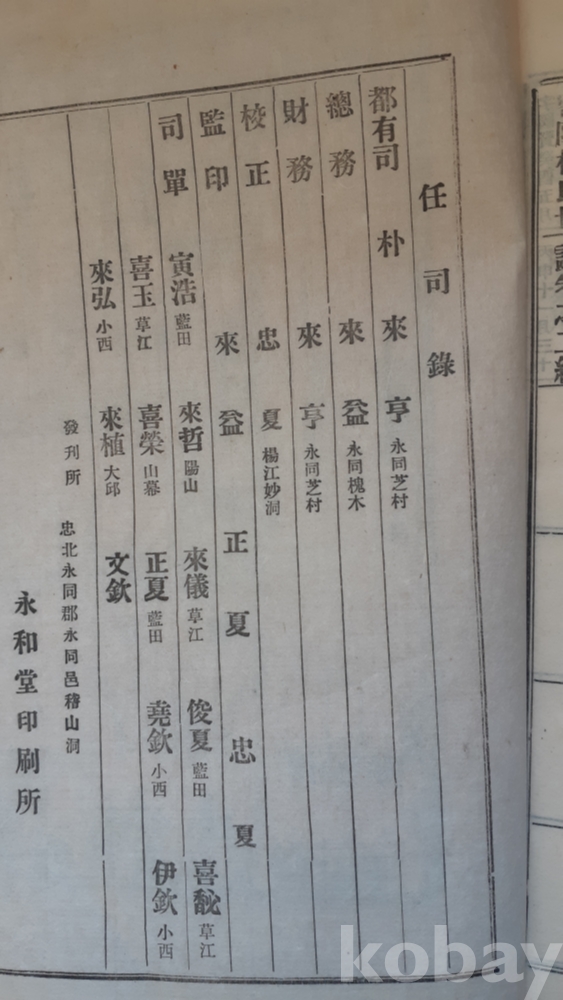 任司錄
都有司 朴來亨 永同芝村
總務 來益 永同槐木
財務 來亨 永同芝村
校正 忠夏 楊江妙洞
監印 來益 正夏 忠夏
司單 寅浩 藍田 來哲 陽山 來儀 草江 俊夏 藍田 喜馝 草江
喜玉 草江 喜榮 山幕 正夏 藍田 堯欽 小西 伊欽 小西
來弘 小西 來植 大邱 文欽
發刊所 忠北永同郡永同邑稽山洞
永和堂印刷所
kobay